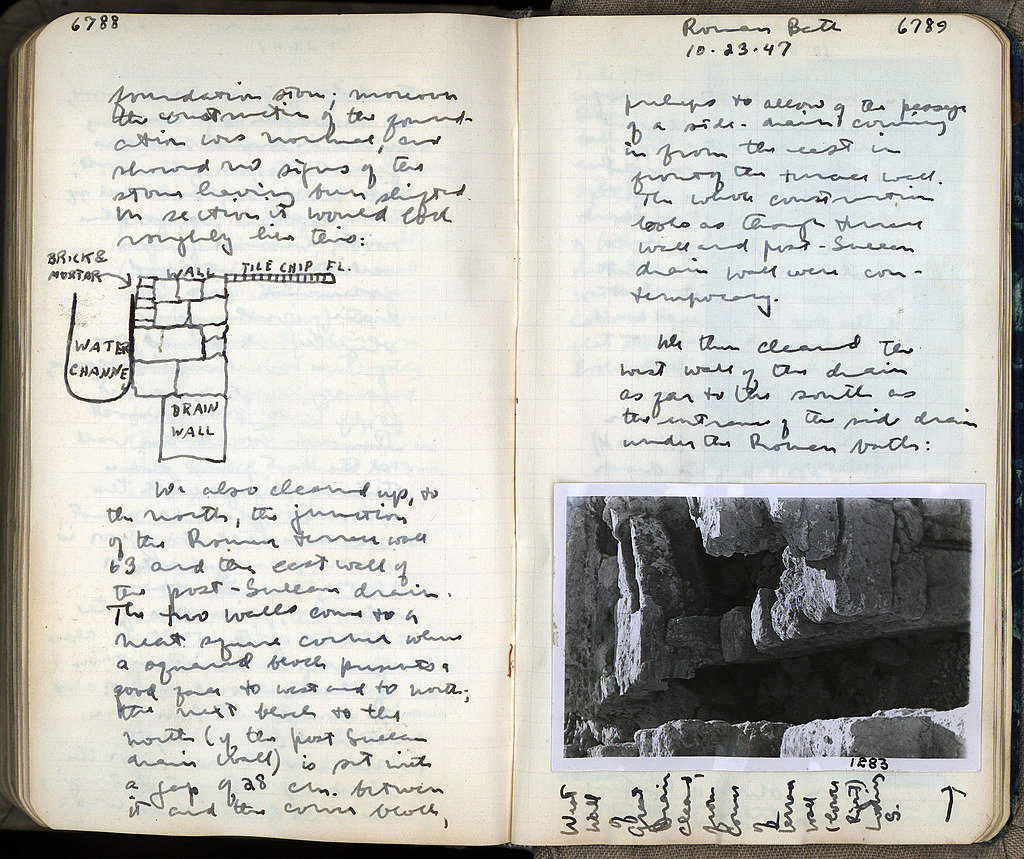 6788
foundation stone; moreover
the construction of the found-
ation was normal, and
showed no signs of the
stone having been shifted.
In section it would look
roughly like this:
BRICK &
MORTAR
WALL
TILE CHIP FL.
WATER
CHANNE
DRAIN
WALL
We also cleaned up, to
the north, the junction
of the Roman terrace wall
63 and the east wall of
the post-Sullan drain.
The two walls come to a
neat square corner where
a squared block presents a
good face to west and to north;
the next block to the
north (of the post Sullan
drain wall) is set with
a gap of .28 cm. between
it and the corner block,
Roman Bath 6789
10-23-47
perhaps to allow of the passage
of a side-drain coming
in from the east in
front of the terrace wall.
The whole construction
looks as though terrace
wall and post-Sullan
drain wall were con-
temporary.
We then cleaned the
west wall of the drain
as far to the south as
the entrance of the side drain
under the Roman baths:
1883
West
wall
of
Great
Drain
cleared
from
corner
of
terrace
wall
(lower
right)
Looking
S.